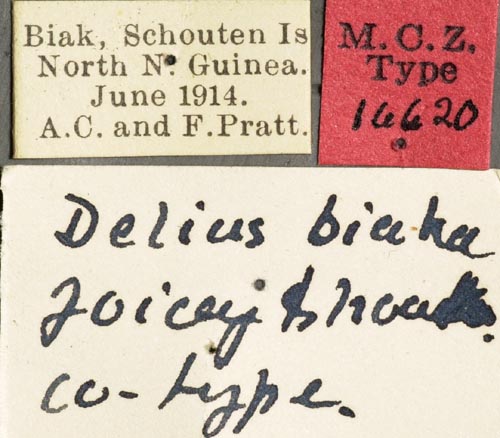 Biak, Schouten Is
North N. Guinea.
June 1914.
A.C. and F. Pratt.
M.C.Z.
Type
16620
Delius biaka
Joicey &
co-type.